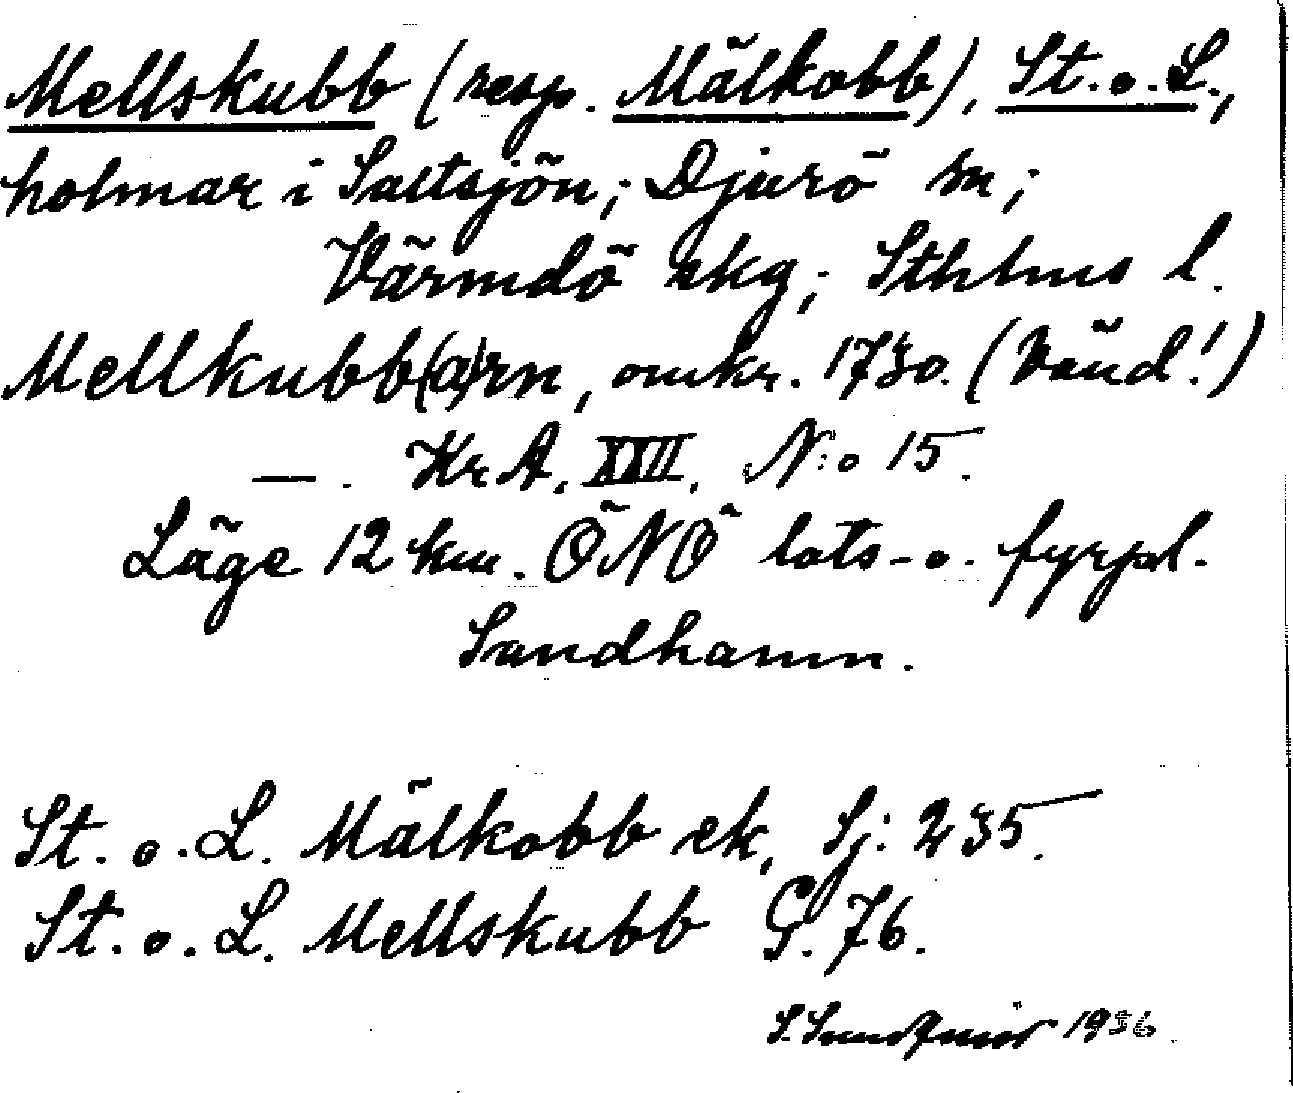 Mellskubb (resp. Mälkobb), St. o. L.,
holmar i Saltsjön; Djurö sn;
Värmdö skg; Sthlms l.
Mellkubb(a)rn, omkr. 1730. (Vänd!)
—. Kr A. XXII. N:o 15.
Läge 12 km. ÖNÖ lots- o. fyrpl.
Sandhamn.
St. o. L. Mälkobb ek, Sj: 235.
St. o. L. Mellskubb G. 76.
1936